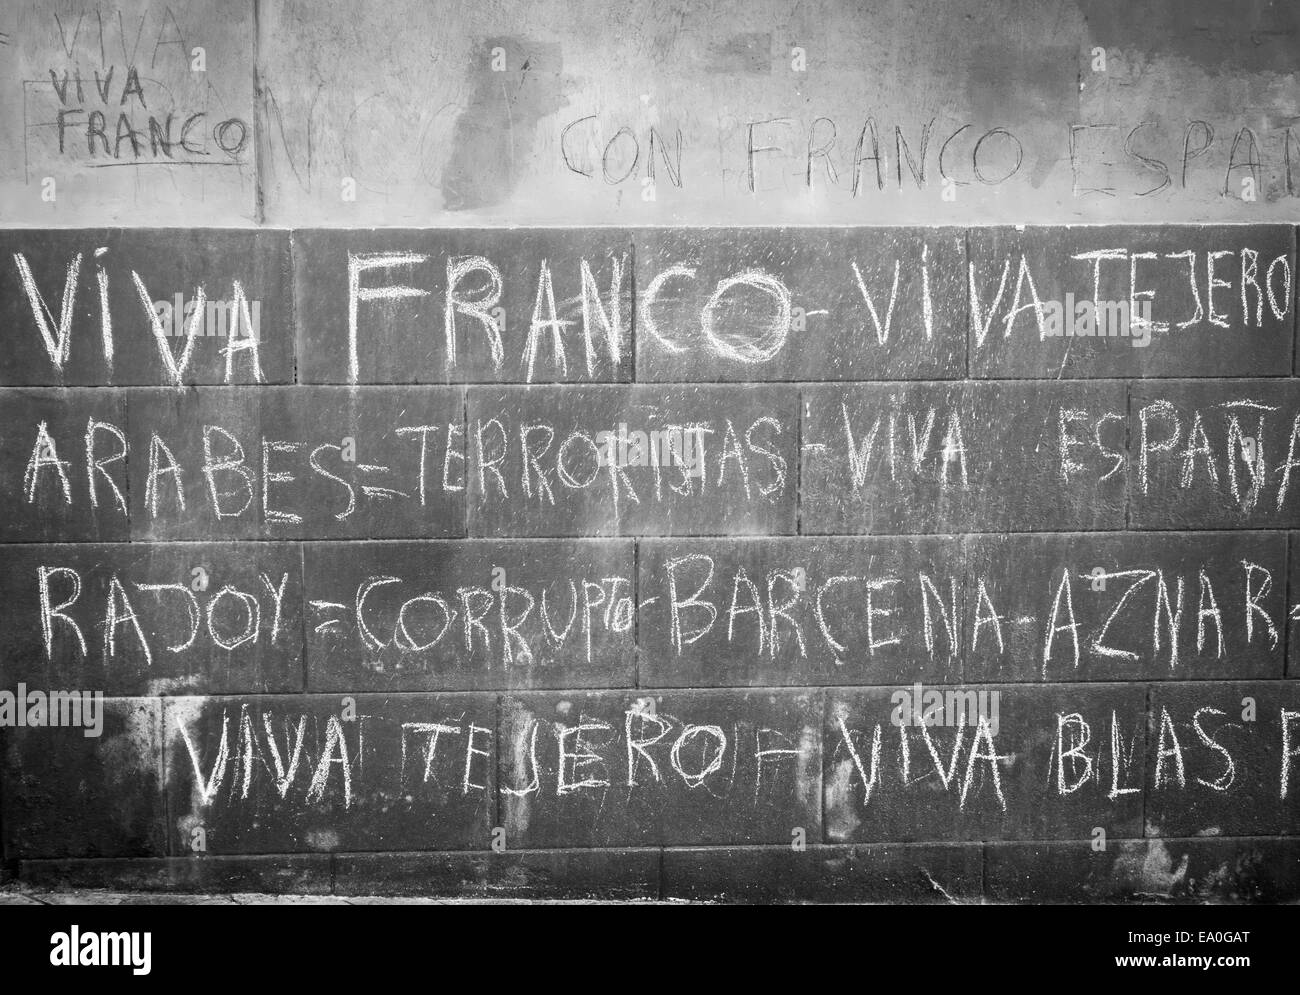 VIVA
VIVA
FRANCO
CON FRANCO ESPAÑ
VIVA FRANCO - VIVA TEJERO
ARABES = TERRORISTAS - VIVA ESPAÑA
RAJOY = CORRUPTO - BARCENA - AZNAR =
VIVA TEJERO - VIVA BLAS P
alamy stock photo
EA0GAT
www.alamy.com